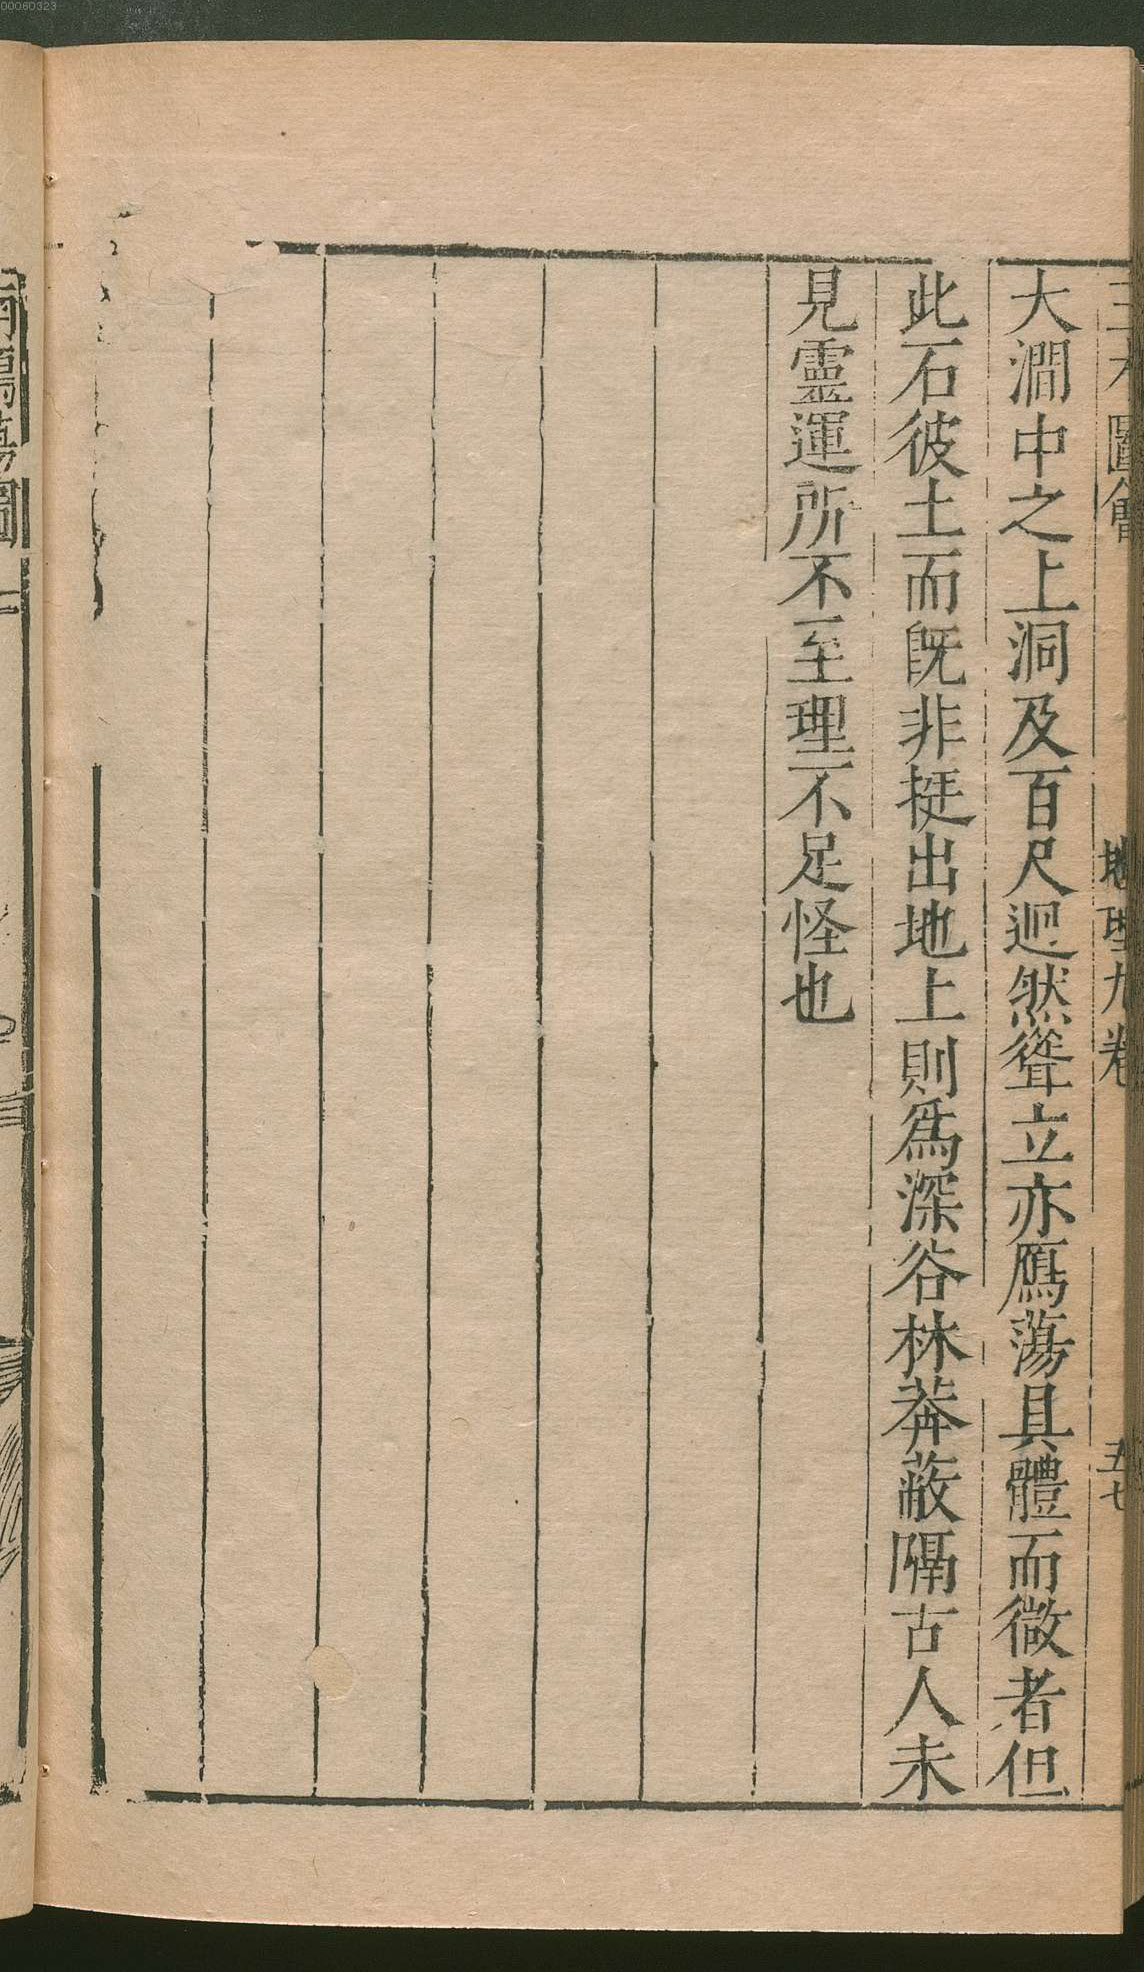 00060323
三才圖會 地理九卷 五七
大澗中之上洞及百尺迥然聳立亦鴈蕩具體而微者但
此石彼土而既非挺出地上則爲深谷林莽蔽隔古人未
見靈運所不至理不足怪也
鴈蕩圖